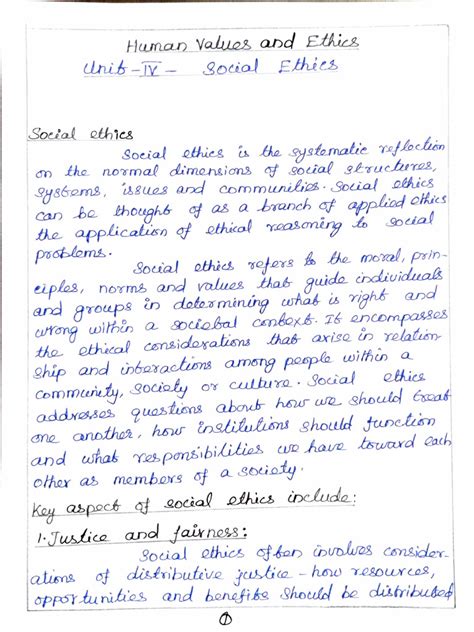 Human Values and Ethics
Unit-IV- Social Ethics
Social ethics
Social ethics is the systematic reflection
on the normal dimensions of social structures,
systems, issues and communities. Social ethics
can be thought of as a branch of applied ethics
the application of ethical reasoning to social
problems.
Social ethics refers to the moral, prin-
ciples, norms and values that guide individuals
and groups in determining what is right and
wrong within a societal context. It encompasses
the ethical considerations that arise in relation-
ship and interactions among people within a
community, society or culture. Social ethics
addresses questions about how we should treat
one another, how institutions should function
and what responsibilities we have toward each
other as members of a society.
Key aspect of social ethics include:
1. Justice and fairness:
Social ethics often involves consider-
ations of distributive justice - how resources,
opportunities and benefits should be distributed
1